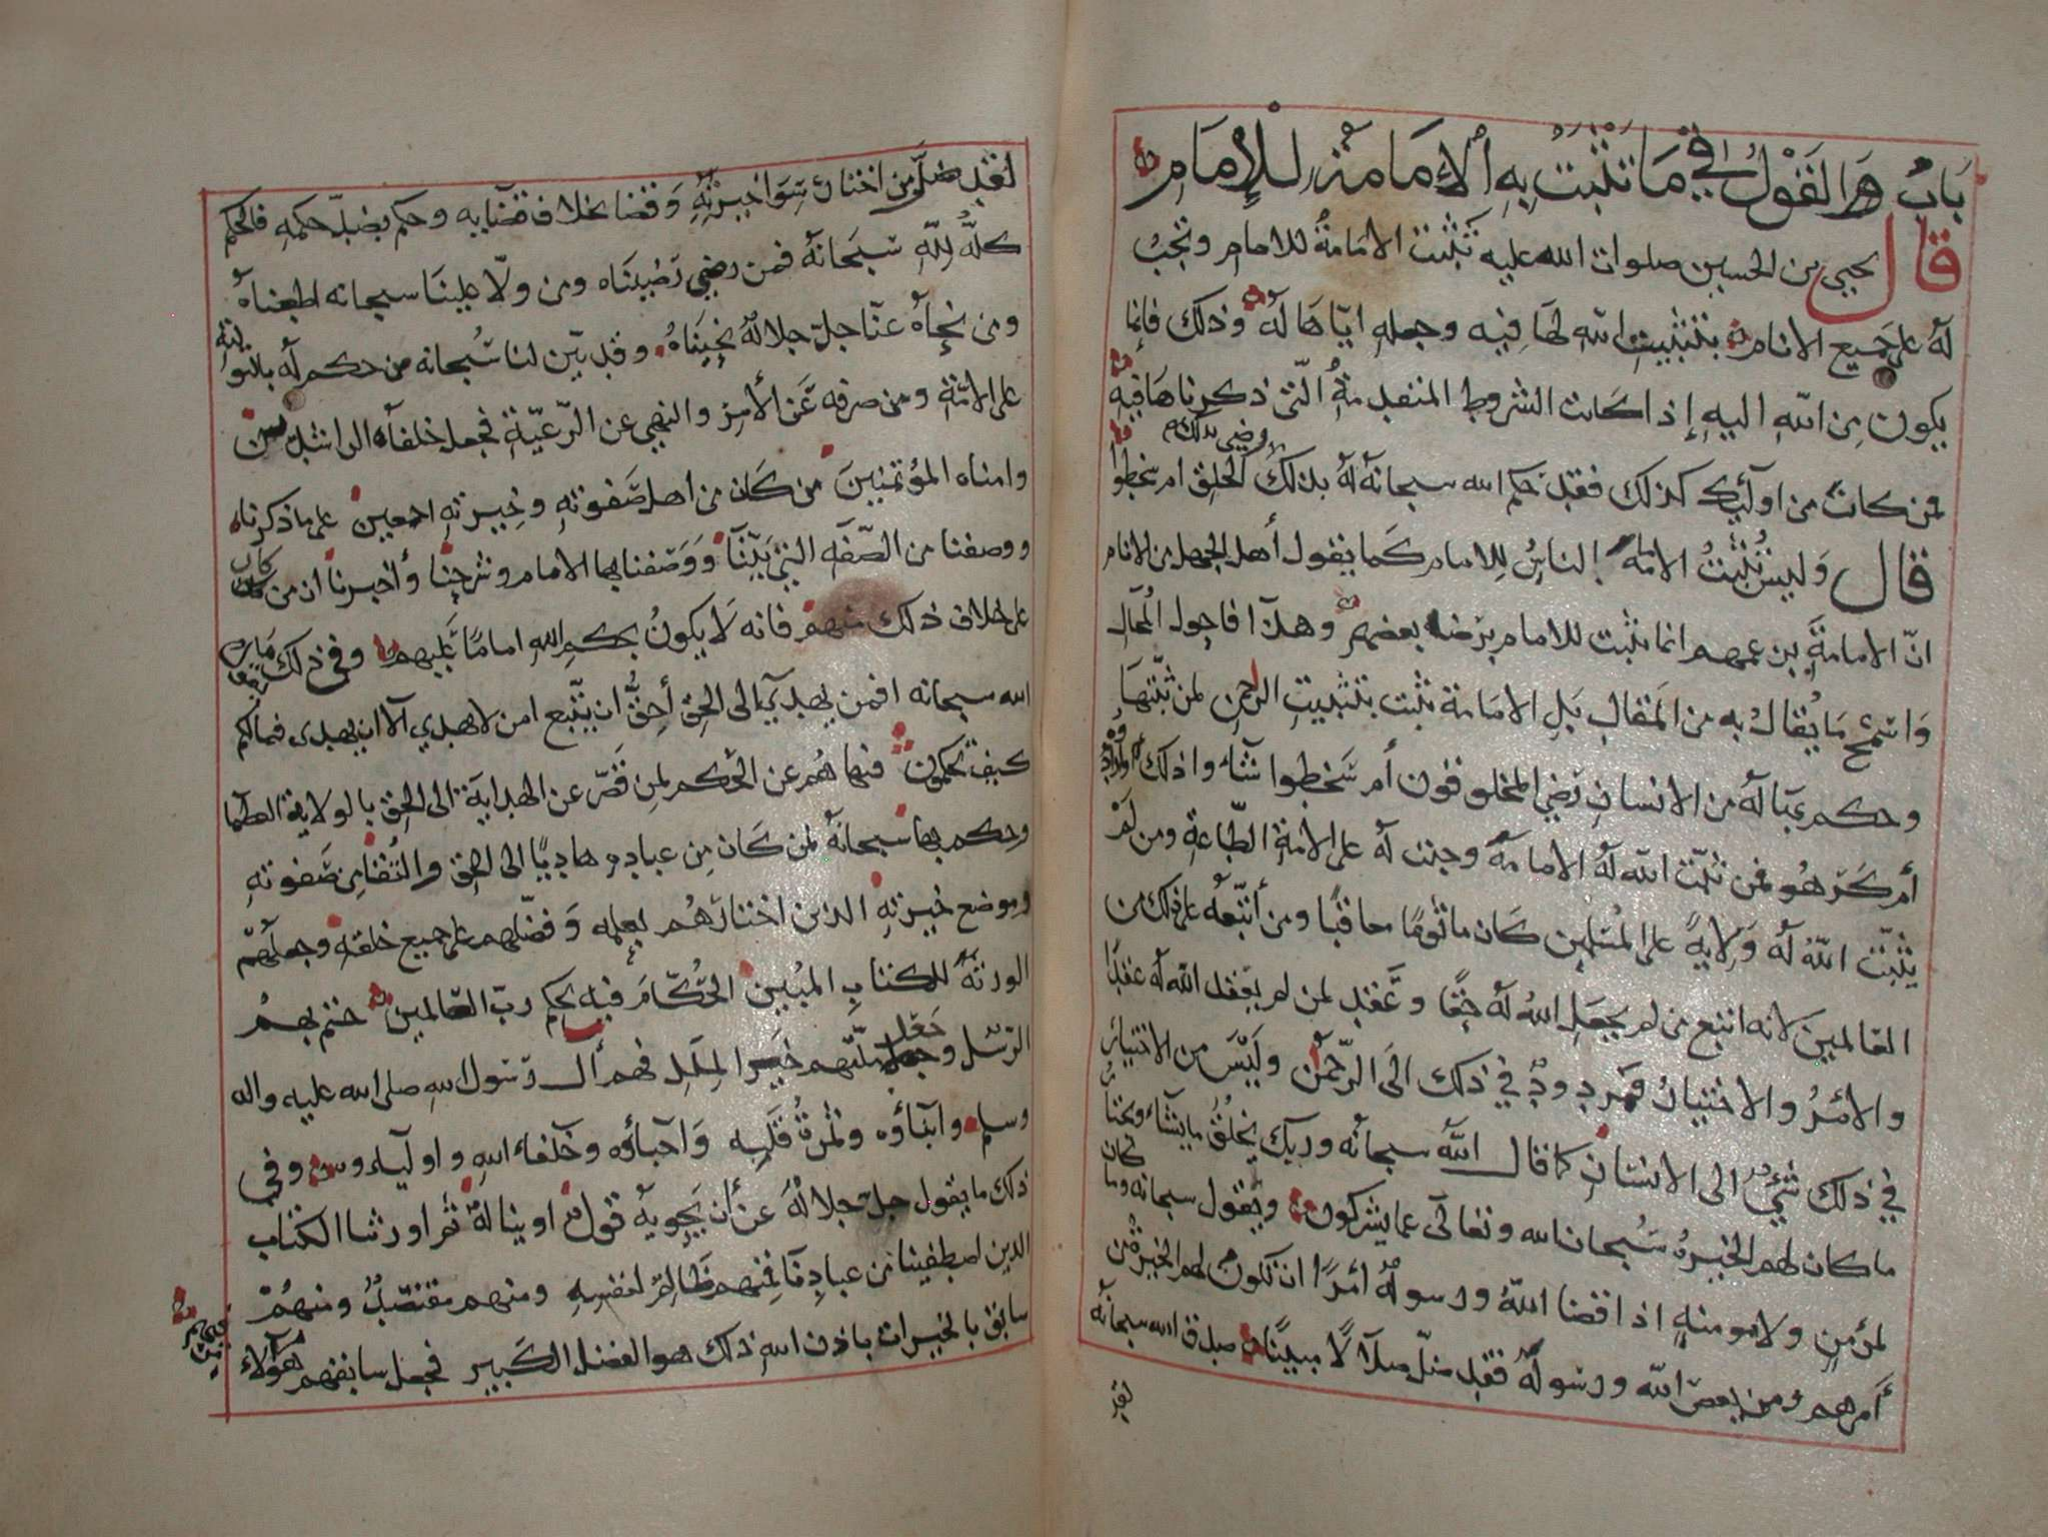 باب القول في ما تثبت به الإمامة للإمام
قال يحيى بن الحسين صلوات الله عليه تثبت الامامة للامام وتجب
له على جميع الانام بتثبيت الله لها فيه وجعله اياها له وذلك فانما
يكون من الله اليه إذا كانت الشروط المتقدمة التي ذكرناها فيه
فمن كان من اولئك كذلك فقد حكم الله سبحانه له بذلك رضي بذلك الخلق ام سخطوا
قال وليس تثبت الامامة بالناس للامام كما يقول أهل الجهل من الانام
انّ الامامة بزعمهم انما تثبت للامام برضا بعضهم وهذا فاحول المحال
واسمج ما يقال به من المقال بل الامامة تثبت بتثبيت الرحمن لمن ثبتها
وحكم بها له من الانسان رضي المخلوقون أم سخطوا شاء واذلك او ارادوا
أم كرهوا فمن ثبّت الله له الامامة وجبت له على الامة الطاعة ومن لم
يثبت الله له ولاية على المسلمين كان ماثوما معاقبا ومن أتبعه على ذلك من
العالمين لانه اتبع من لم يجعل الله له حقا وعقد لمن لم يعقد الله له عقدا
والأمر والاختيار فمردود في ذلك الى الرحمن وليس من الاختيار
في ذلك شيء الى الانسان كما قال الله سبحانه وربك يخلق ما يشاء ويختار
ما كان لهم الخيرة سبحان الله وتعالى عما يشركون ويقول سبحانه وما كان
لمؤمن ولا مومنة اذا قضا الله ورسوله أمرا ان تكون لهم الخيرة من
أمرهم ومن يعص الله ورسوله فقد ضلّ ضلالا مبينا صدق الله سبحانه
لقد
لقد ضلّ من اختار سوا خيرته وقضا بخلاف قضايه وحكم بضدّ حكمه فالحكم
كلّه لله سبحانه فمن رضي رضيناه ومن ولّا علينا سبحانه اطعناه
ومن نحاه عنا جل جلاله نحيناه وقد بيّن لنا سبحانه من حكم له بالتولية
على الامة ومن صرفه عن الأمر والنهي عن الرّعيّة فجعل خلفاه الراشدين
وامناه المؤتمنين من كان من اهل صفوته وخيرته اجمعين على ما ذكرنا
ووصفنا من الصّفه التي بيّنا ووصفنا بها الامام وشرحنا وأخبرنا ان من كان
على خلاف ذلك منهم فانه لا يكون بحكم الله اماما عليهم وفي ذلك ما يقول
الله سبحانه افمن يهدي الى الحق أحق ان يتبع امن لا يهدي الا ان يهدى فمالكم
كيف تحكمون فنهاهم عن الحكم لمن قصّر عن الهداية الى الحق بالولاية العظما
وحكم بها سبحانه لمن كان من عباده هاديا الى الحق والتقا من صفوته
وموضع خيرته الذين اختارهم بعلمه وفضّلهم على جميع خلقه وجعلهم
الورثة للكتاب المبين الحكّام فيه بحكم ربّ العالمين ختم بهم
الرسل وجعل ملتهم خير الملل فهم أل رسول الله صلى الله عليه واله
وسلم وابناؤه وثمرة قلبه واحباؤه وخلفاء الله واولياءوه وفي
ذلك ما يقول جل جلاله عن أن يحويه قول او يناله ثم اورثنا الكتاب
الذين اصطفينا من عبادنا فمنهم ظالم لنفسه ومنهم مقتصد ومنهم
سابق بالخيرات باذن الله ذلك هو الفضل الكبير فجعل سابقهم هؤلاء